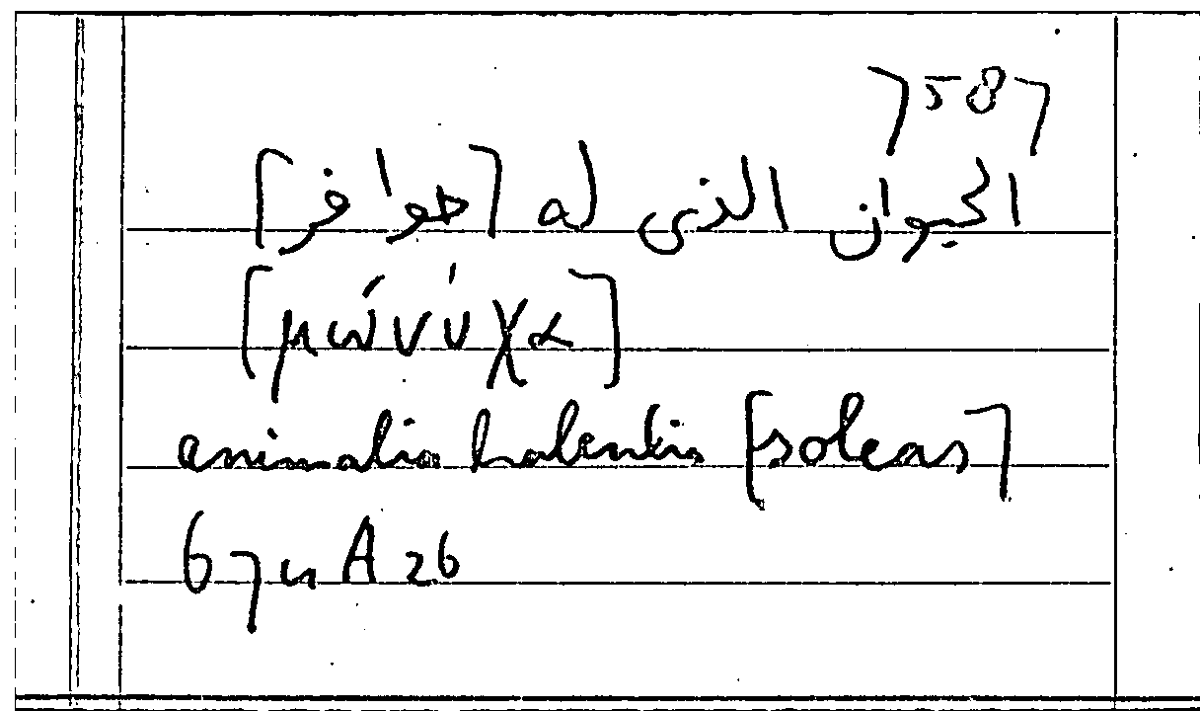 7587
الحيوان الذى له [حوافر]
[μώνύχα]
animalia habentia [soleas]
674 A 26